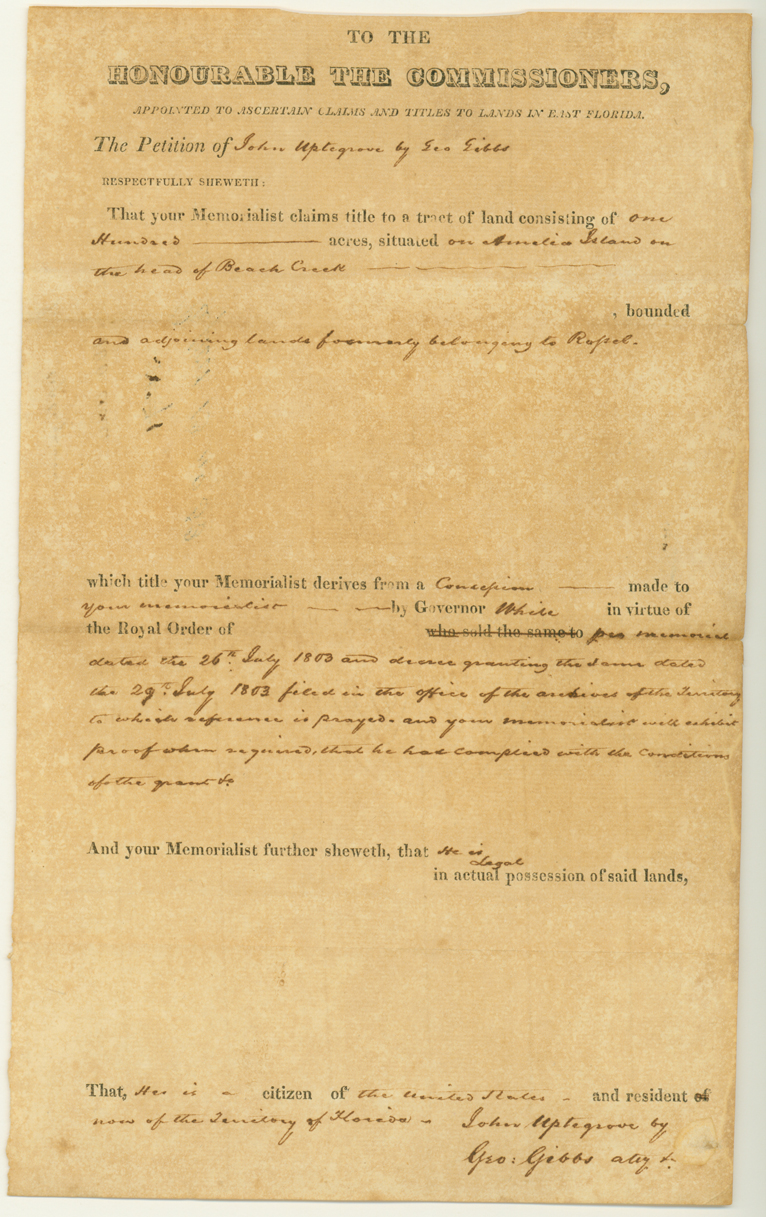 TO THE
HONOURABLE THE COMMISSIONERS,
APPOINTED TO ASCERTAIN CLAIMS AND TITLES TO LANDS IN EAST FLORIDA.
The Petition of John Uptegrove by Geo Gibbs
RESPECTFULLY SHEWETH:
That your Memorialist claims title to a tract of land consisting of one
Hundred ——— acres, situated on Amelia Island on
the head of Beach Creek — — — —
, bounded
and adjoining lands formerly belonging to
which title your Memorialist derives from a Concession —— made to
your memorialist — — by Governor White in virtue of
the Royal Order of who sold the same to per memorial
dated the 26th July 1803 and decree granting the same dated
the 29th July 1803 filed in the office of the archives of the Territory
to which reference is prayed and your memorialist will exhibit
proof when required, that he had complied with the Conditions
of the grant &c
And your Memorialist further sheweth, that He is
Legal
in actual possession of said lands,
That, He is a citizen of the United States - and resident of
now of the Territory of Florida - John Uptegrove by
Geo: Gibbs atty &c